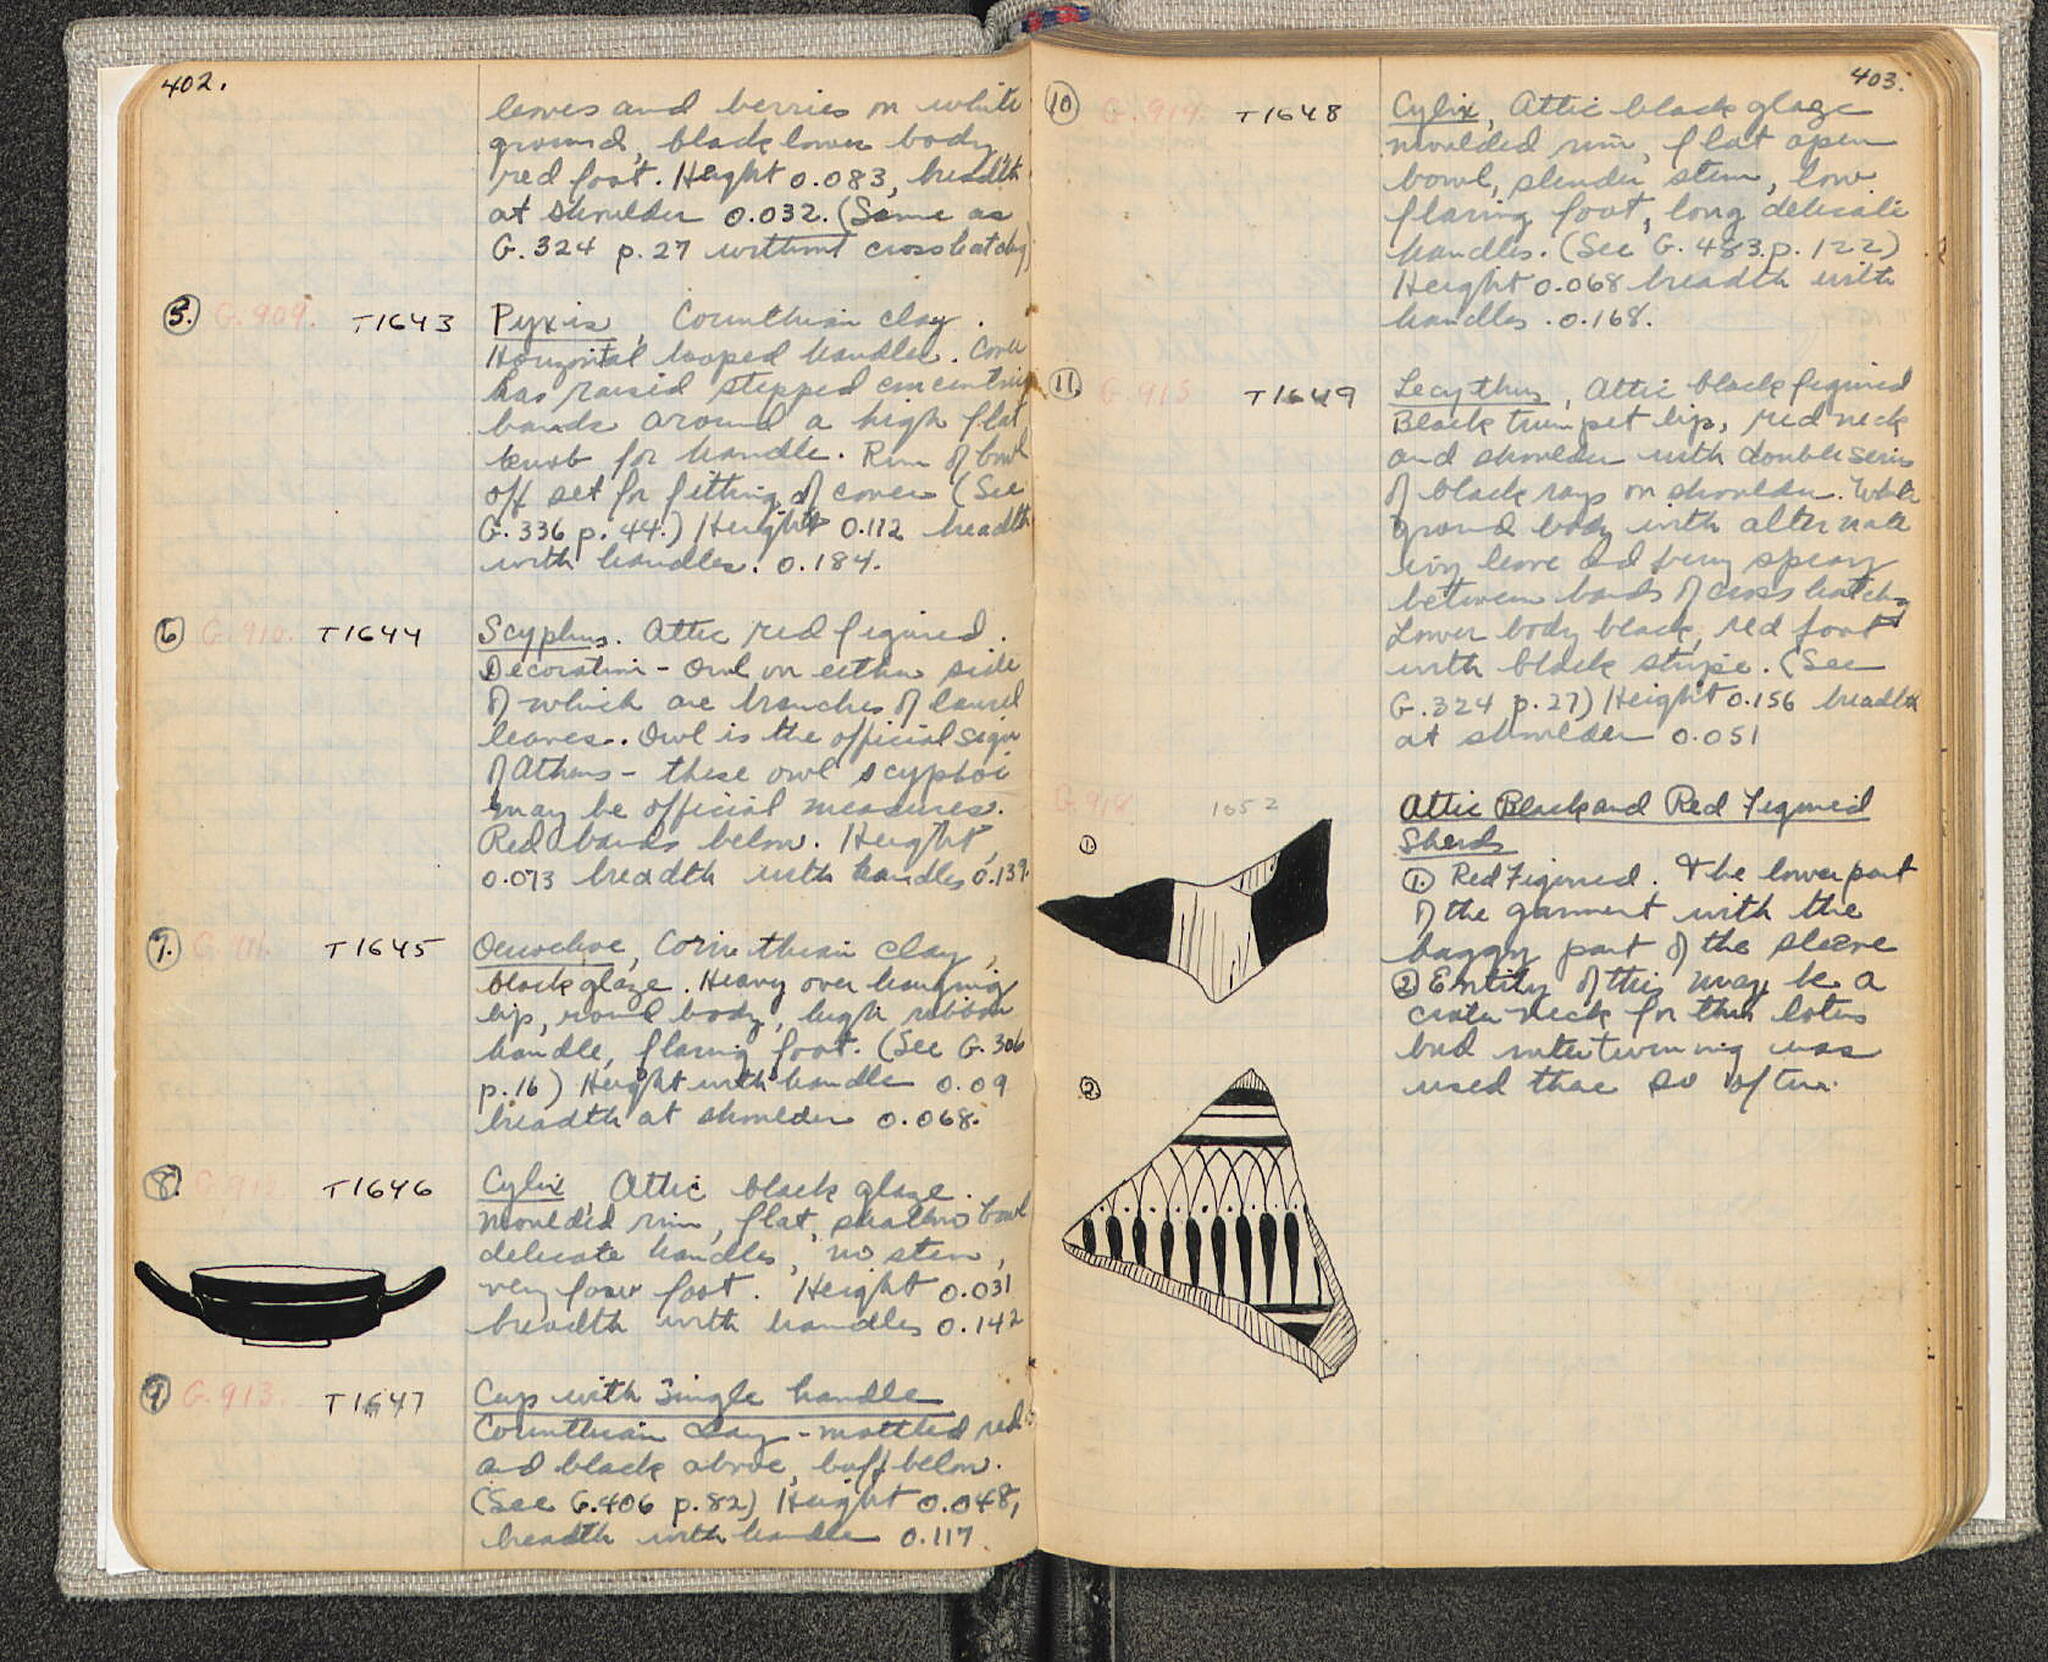 402.
leaves and berries on white
ground, black lower body,
red foot. Height 0.083, breadth
at shoulder 0.032. (Same as
G. 324 p. 27 without crosshatching)
5. G. 909. T1643 Pyxis, Corinthian clay.
Horizontal looped handles. Cover
has raised stepped concentric
bands around a high flat
knob for handle. Rim of bowl
off set for fitting of cover (See
G. 336 p. 44.) Height 0.112 breadth
with handles. 0.184.
6 G. 910. T1644 Scyphus. Attic red figured.
Decoration - Owl on either side
of which are branches of laurel
leaves. Owl is the official sign
of Athens - these owl scyphoi
may be official measures.
Red bands below. Height,
0.073 breadth with handles 0.139.
7. G. 911. T1645 Oenochoe, Corinthian clay,
black glaze. Heavy over hanging
lip, round body, high ribbon
handle, flaring foot. (See G. 306
p. 16) Height with handle 0.09
breadth at shoulder 0.068.
8. G. 912 T1646 Cylix, Attic black glaze.
Moulded rim, flat, shallow bowl
delicate handles, no stem,
very low foot. Height 0.031
breadth with handles 0.142
9. G. 913. T1647 Cup with Single handle
Corinthian Clay - mottled red
and black above, buff below.
(See G. 406 p. 82) Height 0.048,
breadth with handle 0.117.
403.
10 G. 914. T1648 Cylix, Attic black glaze
moulded rim, flat open
bowl, slender stem, low
flaring foot, long delicate
handles. (See G. 483 p. 122)
Height 0.068 breadth with
handles. 0.168.
11. G. 915 T1649 Lecythus, Attic black figured
Black trumpet lip, red neck
and shoulder with double series
of black rays on shoulder. White
ground body with alternate
ivy leave and berry spray
between bands of cross hatching
Lower body black, red foot
with black stripe. (See
G. 324 p. 27) Height 0.156 breadth
at shoulder 0.051
G. 918 1652 Attic Black and Red Figured
Sherds
1. 1. Red Figured. The lower part
of the garment with the
baggy part of the sleeve
2 Entity of this may be a
crater neck for this lotus
bud intertwining was
2. used thae so often.